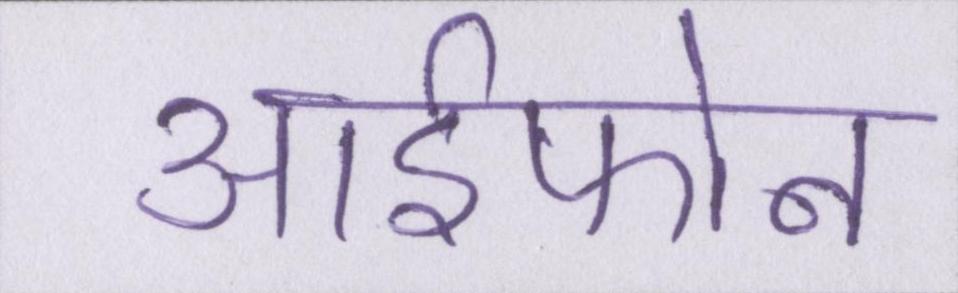 आईफोन